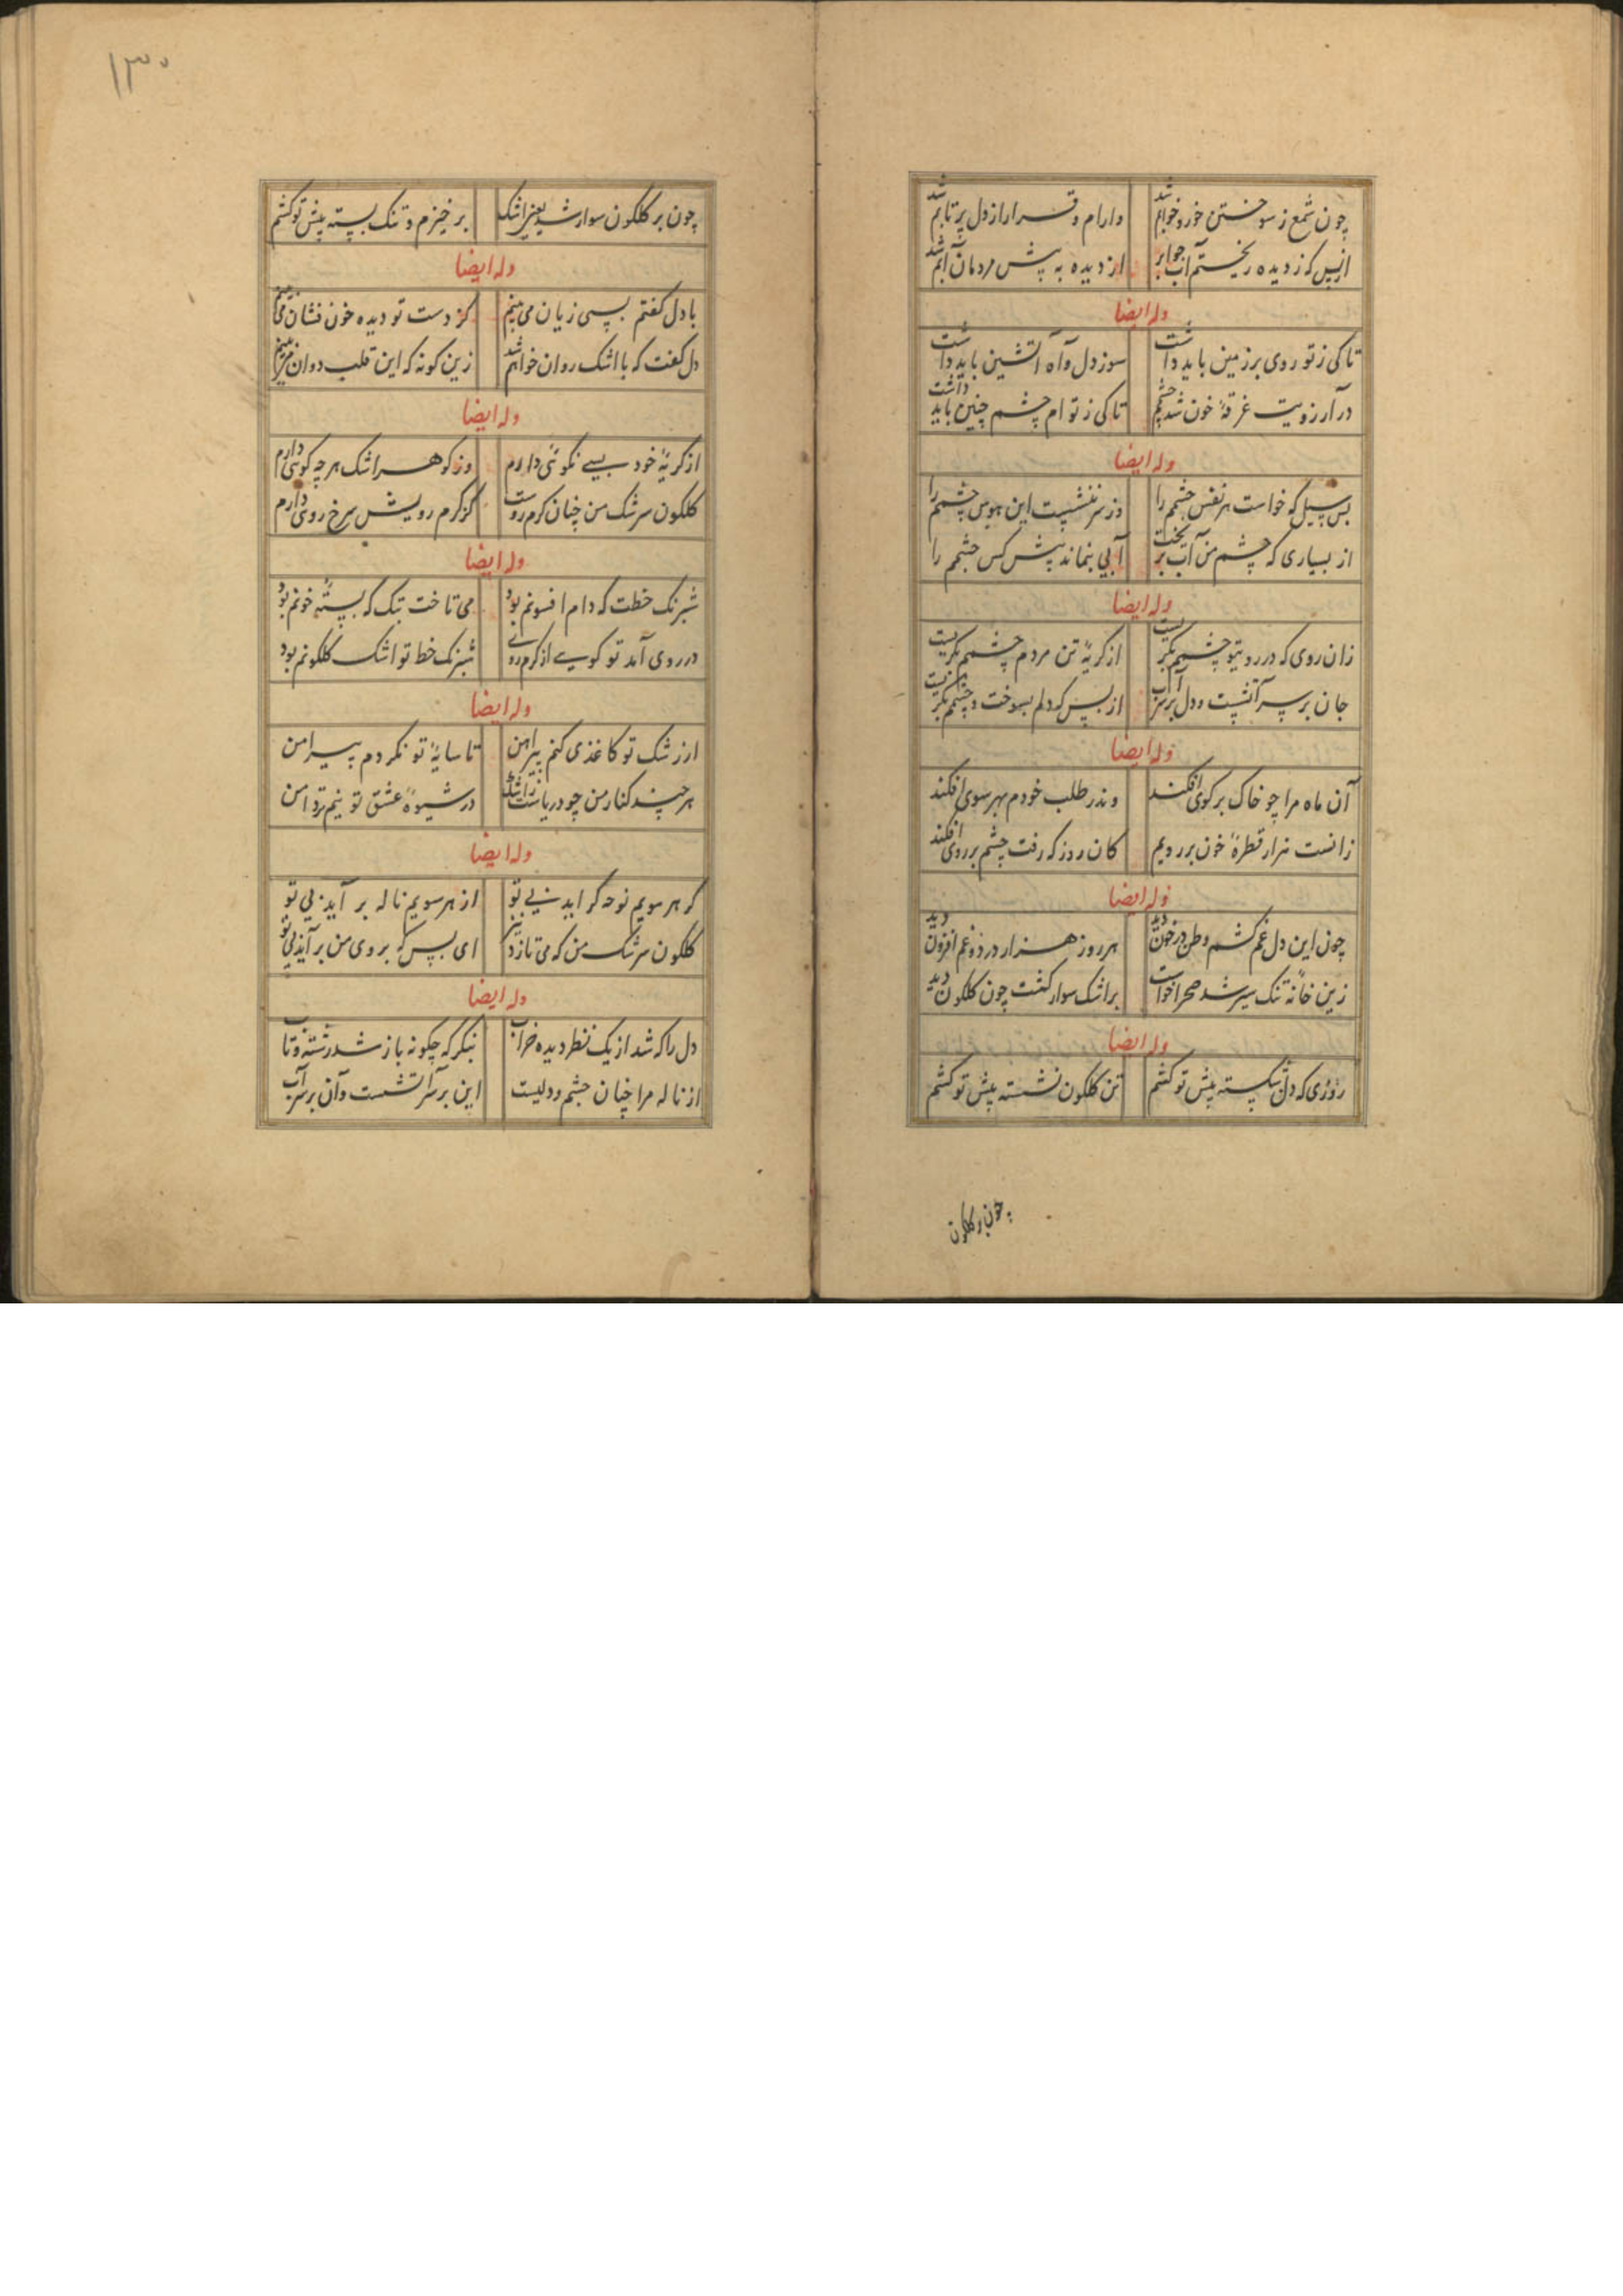 چون شمع ز سوختن خور و خوابم شد
وارام و قرار از دل پرتابم شد
از بس که ز دیده ریختم آب جواب بر
از دیده به پیش مردمان آبم شد
وله ایضا
تا کی ز تو روی بر زمین باید داشت
سوز دل و آه آتشین باید داشت
در آرزویت غرقهٔ خون شد چشمم
تا کی ز توام چشم چنین باید داشت
وله ایضا
بس سیل که خاست هر نفس چشمم را
وز سر ننشست این هوس چشمم را
از بسیاری که چشم من آب بریخت
آبی بنماند پیش کس چشمم را
وله ایضا
زان روی که در روی تو چشمم نگریست
از گریهٔ تن مردم چشمم نگریست
جان بر سر آتشست و دل بر سر آب
از بس که دلم بسوخت و چشمم بگریست
وله ایضا
آن ماه مرا چو خاک بر کوی افکند
وندر طلب خودم بهر سوی افکند
زانست هزار قطرهٔ خون بر رویم
کان روز که رفت چشم بر روی افکند
وله ایضا
چون این دل غم کشم وطن در خون دید
هر روز هزار درد و غم افزون دید
زین خانهٔ تنک سیر شد صحرا خواست
بر اشک سوار کشت چون کلکون دید
وله ایضا
روزی که دل شکسته پیش تو کشم
تن کلکون نشسته پیش تو کشم
چون بر کلکون
۱۳۰
چون بر کلکون سوار شد یعنی اشک
بر خیزم و تنک بسته پیش تو کشم
وله ایضا
با دل کفتم بسی زیان می بینم
کز دست تو دیده خون فشان می بینم
دل کفت که با اشک روان خواهم شد
زین کونه که این قلب دوان می بینم
وله ایضا
از کریهٔ خود بسی نکوئی دارم
وز کوهر اشک هر چه کوئی دارم
کلکون سرشک من چنان کرم روست
کز کرم رویش سرخ روئی دارم
وله ایضا
شبرنک خطت که دام افسونم بود
می تاخت بتک که بستهٔ خونم بود
در روی آمد تو کویی از کرم روی
شبرنک خط تو اشک کلکونم بود
وله ایضا
از رشک تو کاغذی کنم پیراهن
تا سایهٔ تو نکردم پیرامن
هر چند کنار من چو دریاست ز اشک
در شیوهٔ عشق تو نیم تردامن
وله ایضا
کر هر مویم نوحه کر آید بی تو
از هر مویم ناله بر آید بی تو
کلکون سرشک من که می تازد تیز
ای بس که بروی من بر آید بی تو
وله ایضا
دل را که شد از یک نظر دیده خراب
بنکر که چکونه باز شد رشته و تاب
از ناله مرا چنان چشم و دلیست
این بر سر آتشست و آن بر سر آب